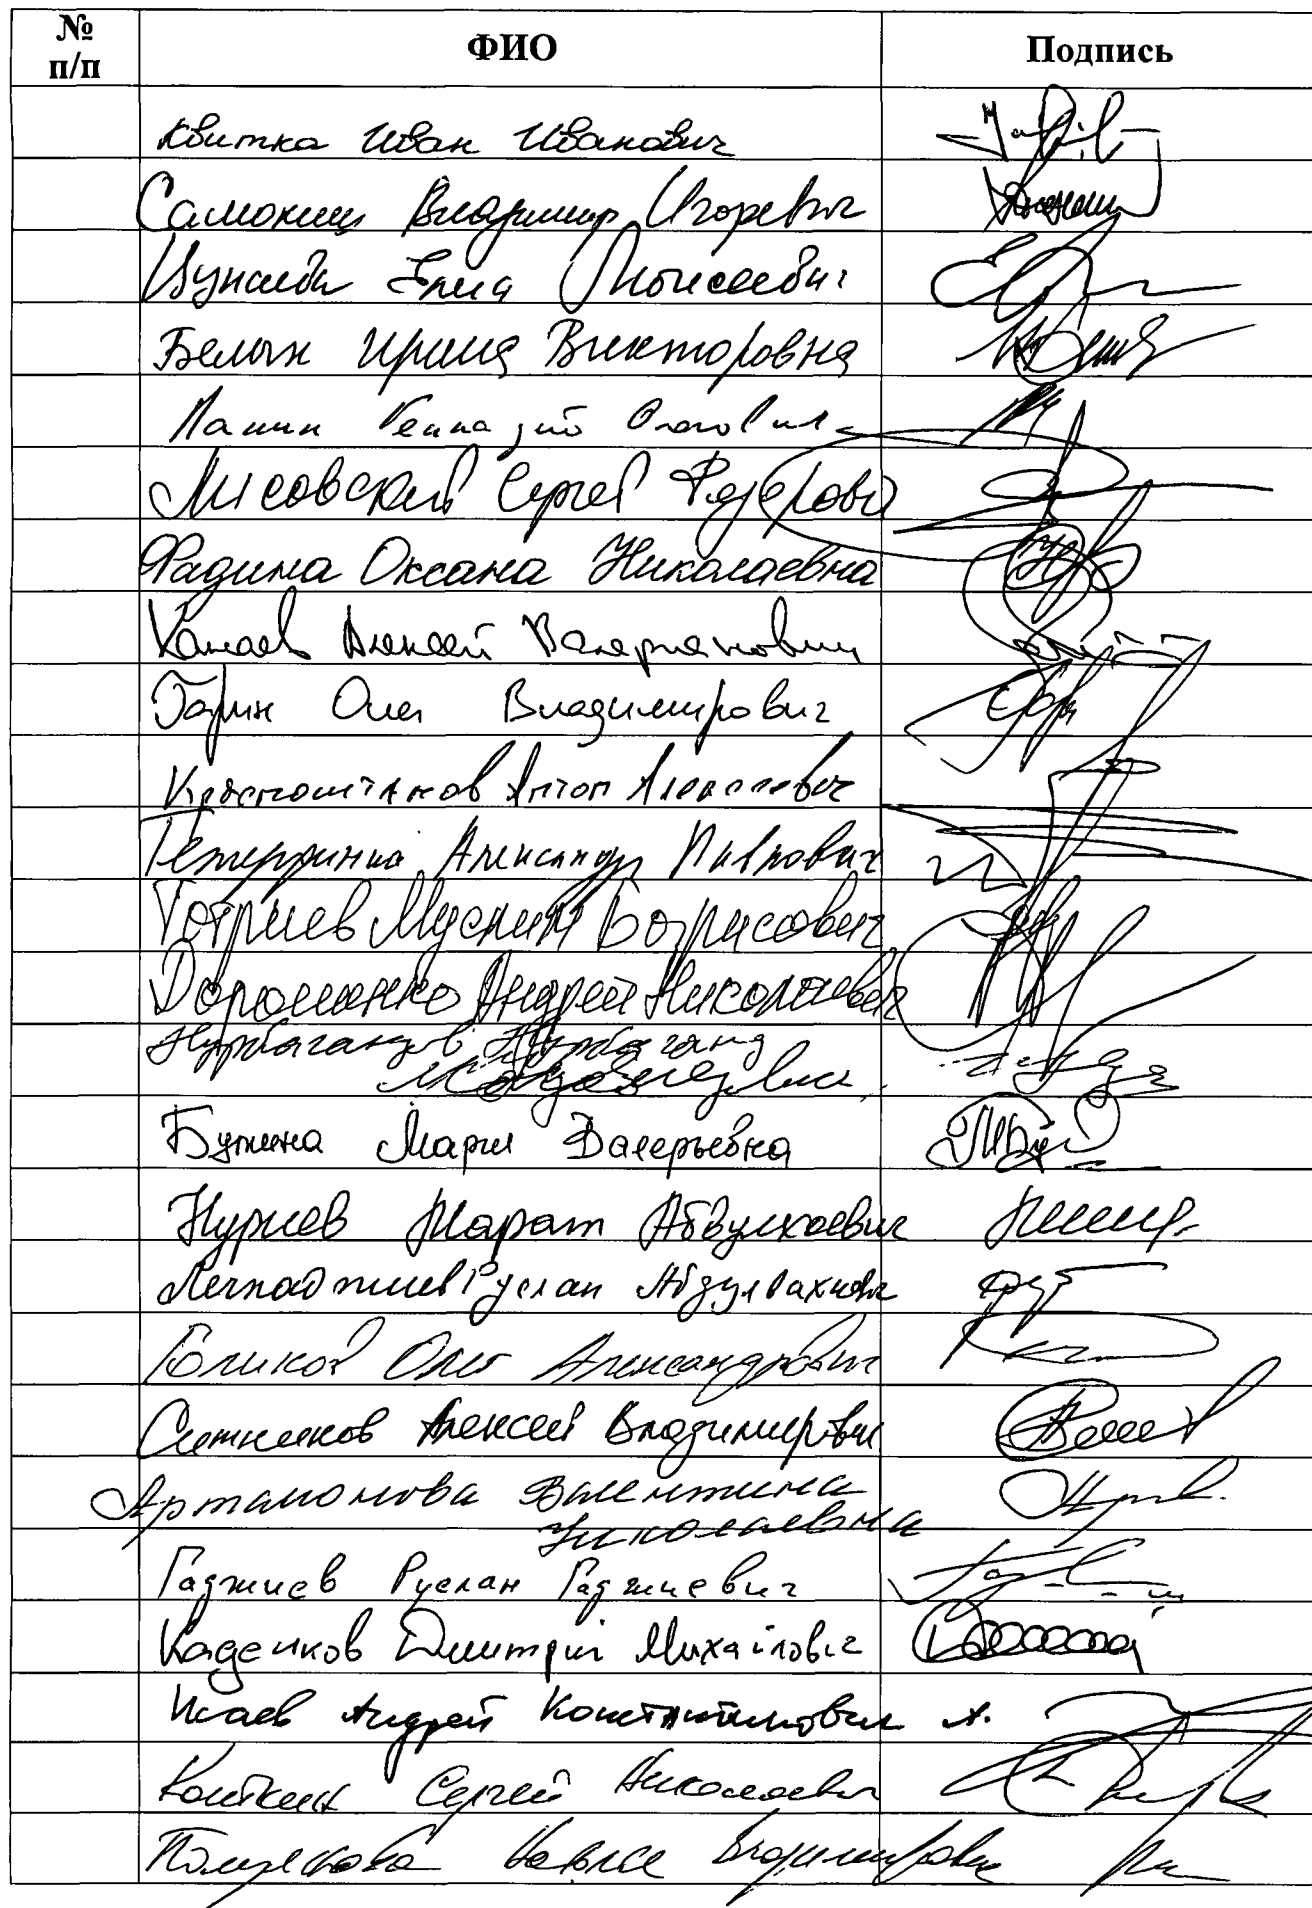 № п/п ФИО Подпись
Квитка Иван Иванович
Самокиш Владимир Игоревич
Цунаева Елена Моисеевна
Белых Ирина Викторовна
Панин Геннадий Олегович
Лисовский Сергей Федорович
Фадина Оксана Николаевна
Канаев Алексей Валерианович
Гарин Олег Владимирович
Красноштанов Антон Алексеевич
Тетердинко Александр Павлович
Тотриев Муслим Борисович
Дорошенко Андрей Николаевич
Нурбагандов Нурбаганд
Магомедович
Бутина Мария Валерьевна
Нуриев Марат Абдулхаевич
Лечхаджиев Руслан Абдулвахидович
Голиков Олег Александрович
Ситников Алексей Владимирович
Артамонова Валентина
Николаевна
Гаджиев Руслан Гаджиевич
Каденков Дмитрий Михайлович
Исаев Андрей Константинович
Кошкин Сергей Николаевич
Владимировна